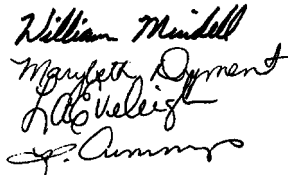 William Mindell
Marybeth Dyment
LAEveleigh
L. Cummings